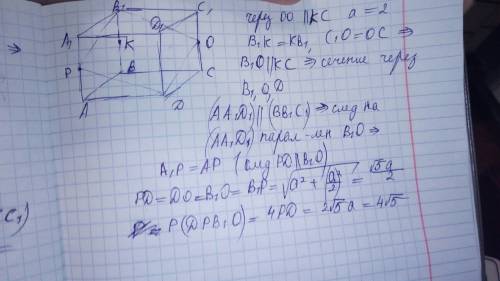 B₁
C₁
D₁
A₁
K
O
P
B
C
A
D
C₁)
через DO || KC a = 2
B₁K = KB₁, C₁O = OC ⇒
B₁O || KC ⇒ сечение через
B₁, O, D
(AA₁D₁) || (BB₁C₁) ⇒ след на
(AA₁D₁) парал-лен B₁O ⇒
A₁P = AP (след PD || B₁O)
PD = DO = B₁O = B₁P = √(a² + (a/2)²) = √5a/2
P(DPB₁O) = 4PD = 2√5 a = 4√5